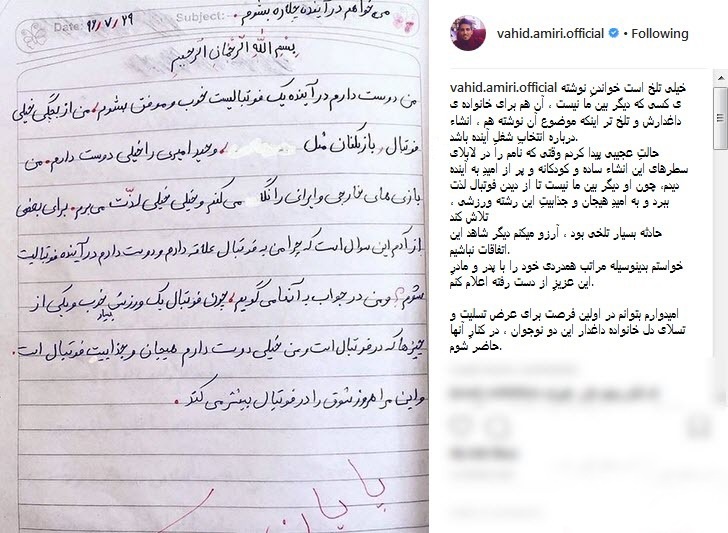 می خواهم در آینده چکاره بشوم.
Date: ۹۶/۷/۲۹ Subject:
بِسْمِ اللهِ الرَّحْمانِ الرَّحیمِ
من دوست دارم در آینده یک فوتبالیست خوب و موفق بشوم، من از بچگی خیلی
فوتبال و بازیکنان مثل وحید امیری را خیلی دوست دارم. من
بازی های خارجی و ایرانی را نگاه می کنم و خیلی خیلی لذّت می برم. برای بعضی
از آدم این سوال است که چرا من به فوتبال علاقه دارم و دوست دارم در آینده فوتبالیست
بشوم؟ و من در جواب به آنها می گویم، چون فوتبال یک ورزش بسیار خوب و یکی از
چیزها که در فوتبال است و من خیلی دوست دارم هیجان و جذابیت فوتبال است.
و این مرا هر روز شوق را در فوتبال بیشتر می کند.
پایان
vahid.amiri.official • Following
vahid.amiri.official خیلی تلخ است خواندن نوشته
ی کسی که دیگر بین ما نیست ، آن هم برای خانواده ی
داغدارش و تلخ تر اینکه موضوع آن نوشته هم ، انشاء
درباره انتخاب شغل آینده باشد.
حالتِ عجیبی پیدا کردم وقتی که نامم را در لابلای
سطرهای این انشاء ساده و کودکانه و پر از امیدِ به آینده
دیدم، چون او دیگر بین ما نیست تا از دیدن فوتبال لذت
ببرد و به امید هیجان و جذابیتِ این رشته ورزشی ،
تلاش کند
حادثه بسیار تلخی بود ، آرزو میکنم دیگر شاهد این
اتفاقات نباشیم.
خواستم بدینوسیله مراتب همدردی خود را با پدر و مادرِ
این عزیزِ از دست رفته اعلام کنم
امیدوارم بتوانم در اولین فرصت برای عرض تسلیت و
تسلای دل خانواده داغدار این دو نوجوان ، در کنار آنها
حاضر شوم.